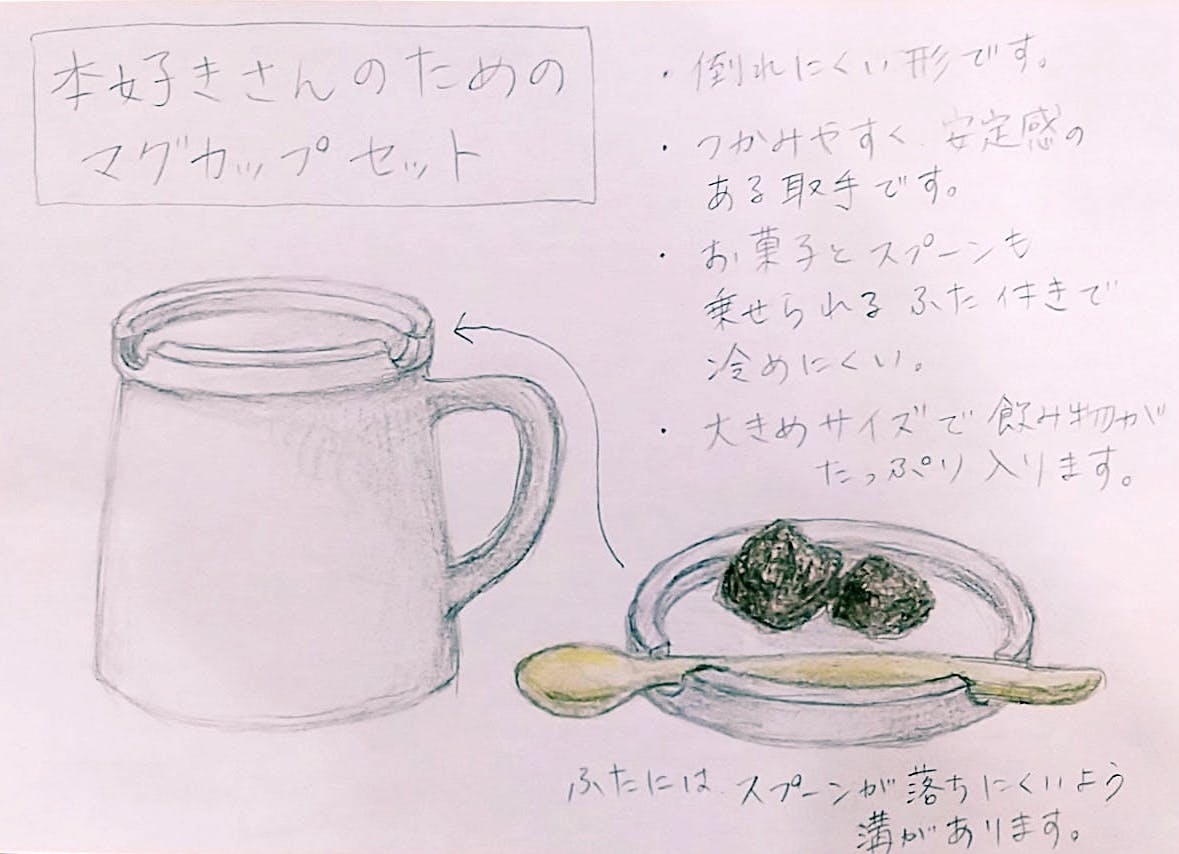 本好きさんのための
マグカップセット
・倒れにくい形です。
・つかみやすく、安定感の
ある取手です。
・お菓子とスプーンも
乗せられるふた付きで
冷めにくい。
・大きめサイズで飲み物が
たっぷり入ります。
ふたには、スプーンが落ちにくいよう
溝があります。